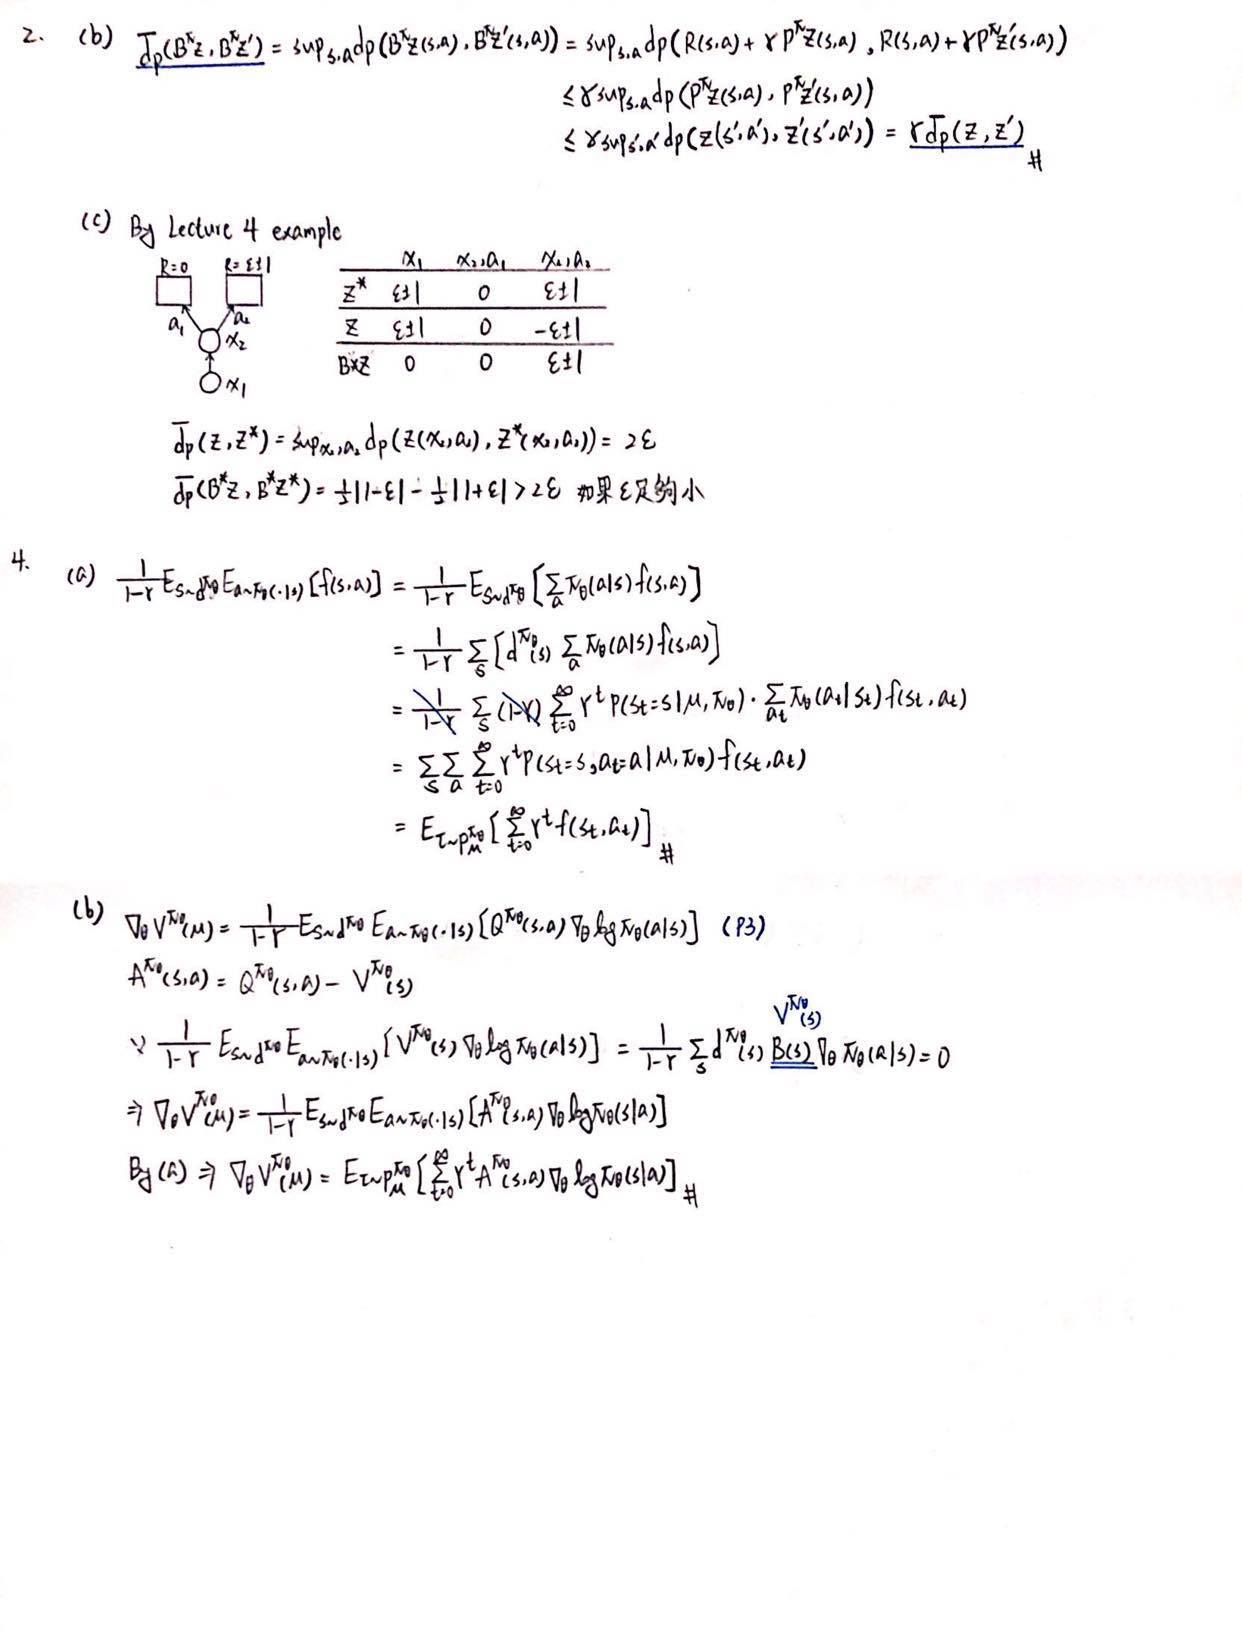 2. (b) d̄p(B^πz, B^πz') = sup_{s,a} dp(B^πz(s,a), B^πz'(s,a)) = sup_{s,a} dp(R(s,a) + γP^πz(s,a), R(s,a) + γP^πz'(s,a))
≤ γ sup_{s,a} dp(P^πz(s,a), P^πz'(s,a))
≤ γ sup_{s',a'} dp(z(s',a'), z'(s',a')) = γ d̄p(z, z') #
(c) By Lecture 4 example
R=0 R=ε±1
x₁ x₂,a₁ x₂,a₂
z* ε±1 0 ε±1
a₁ a₂ x₂
z ε±1 0 -ε±1
B*z 0 0 ε±1
x₁
d̄p(z, z*) = sup_{x₂,a₂} dp(z(x₂,a₂), z*(x₂,a₂)) = 2ε
d̄p(B*z, B*z*) = ½|1-ε| - ½|1+ε| > 2ε 如果 ε足夠小
4. (a) 1/(1-γ) E_{s~d^πθ} E_{a~πθ(·|s)} [f(s,a)] = 1/(1-γ) E_{s~d^πθ} [Σ_a πθ(a|s) f(s,a)]
= 1/(1-γ) Σ_s [d^πθ(s) Σ_a πθ(a|s) f(s,a)]
= 1/(1-γ) Σ_s (1-γ) Σ_{t=0}^∞ γ^t P(s_t=s|μ, πθ) · Σ_{a_t} πθ(a_t|s_t) f(s_t, a_t)
= Σ_s Σ_a Σ_{t=0}^∞ γ^t P(s_t=s, a_t=a|μ, πθ) f(s_t, a_t)
= E_{τ~P_μ^πθ} [Σ_{t=0}^∞ γ^t f(s_t, a_t)] #
(b) ∇θ V^πθ(μ) = 1/(1-γ) E_{s~d^πθ} E_{a~πθ(·|s)} [Q^πθ(s,a) ∇θ log πθ(a|s)] (P3)
A^πθ(s,a) = Q^πθ(s,a) - V^πθ(s)
V^πθ(s)
∵ 1/(1-γ) E_{s~d^πθ} E_{a~πθ(·|s)} [V^πθ(s) ∇θ log πθ(a|s)] = 1/(1-γ) Σ_s d^πθ(s) B(s) ∇θ πθ(a|s) = 0
⇒ ∇θ V^πθ(μ) = 1/(1-γ) E_{s~d^πθ} E_{a~πθ(·|s)} [A^πθ(s,a) ∇θ log πθ(s|a)]
By (a) ⇒ ∇θ V^πθ(μ) = E_{τ~P_μ^πθ} [Σ_{t=0}^∞ γ^t A^πθ(s,a) ∇θ log πθ(s|a)] #